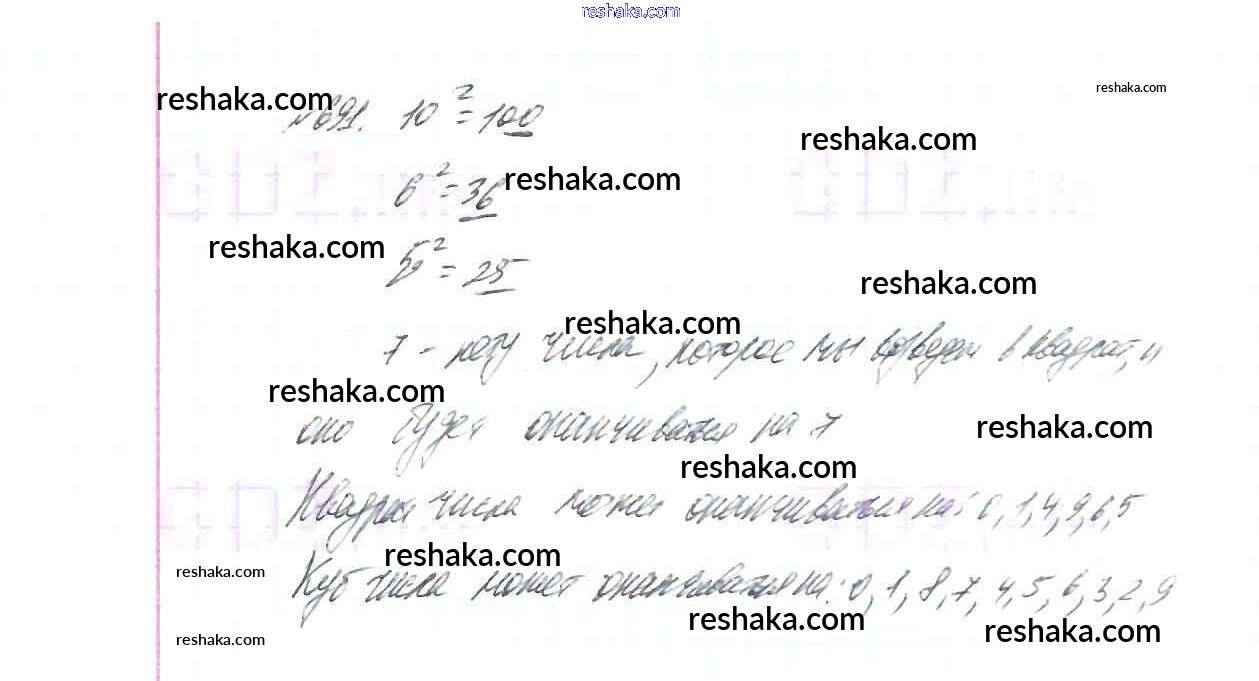 reshaka.com
reshaka.com
reshaka.com
№691. 10² = 100
reshaka.com
6² = 36
reshaka.com
reshaka.com
5² = 25
reshaka.com
reshaka.com
7 - нету числа, которое мы возведем в квадрат, и
reshaka.com
оно будет оканчиваться на 7
reshaka.com
reshaka.com
Квадрат числа может оканчиваться на: 0, 1, 4, 9, 6, 5
reshaka.com
reshaka.com
Куб числа может оканчиваться на: 0, 1, 8, 7, 4, 5, 6, 3, 2, 9
reshaka.com
reshaka.com
reshaka.com